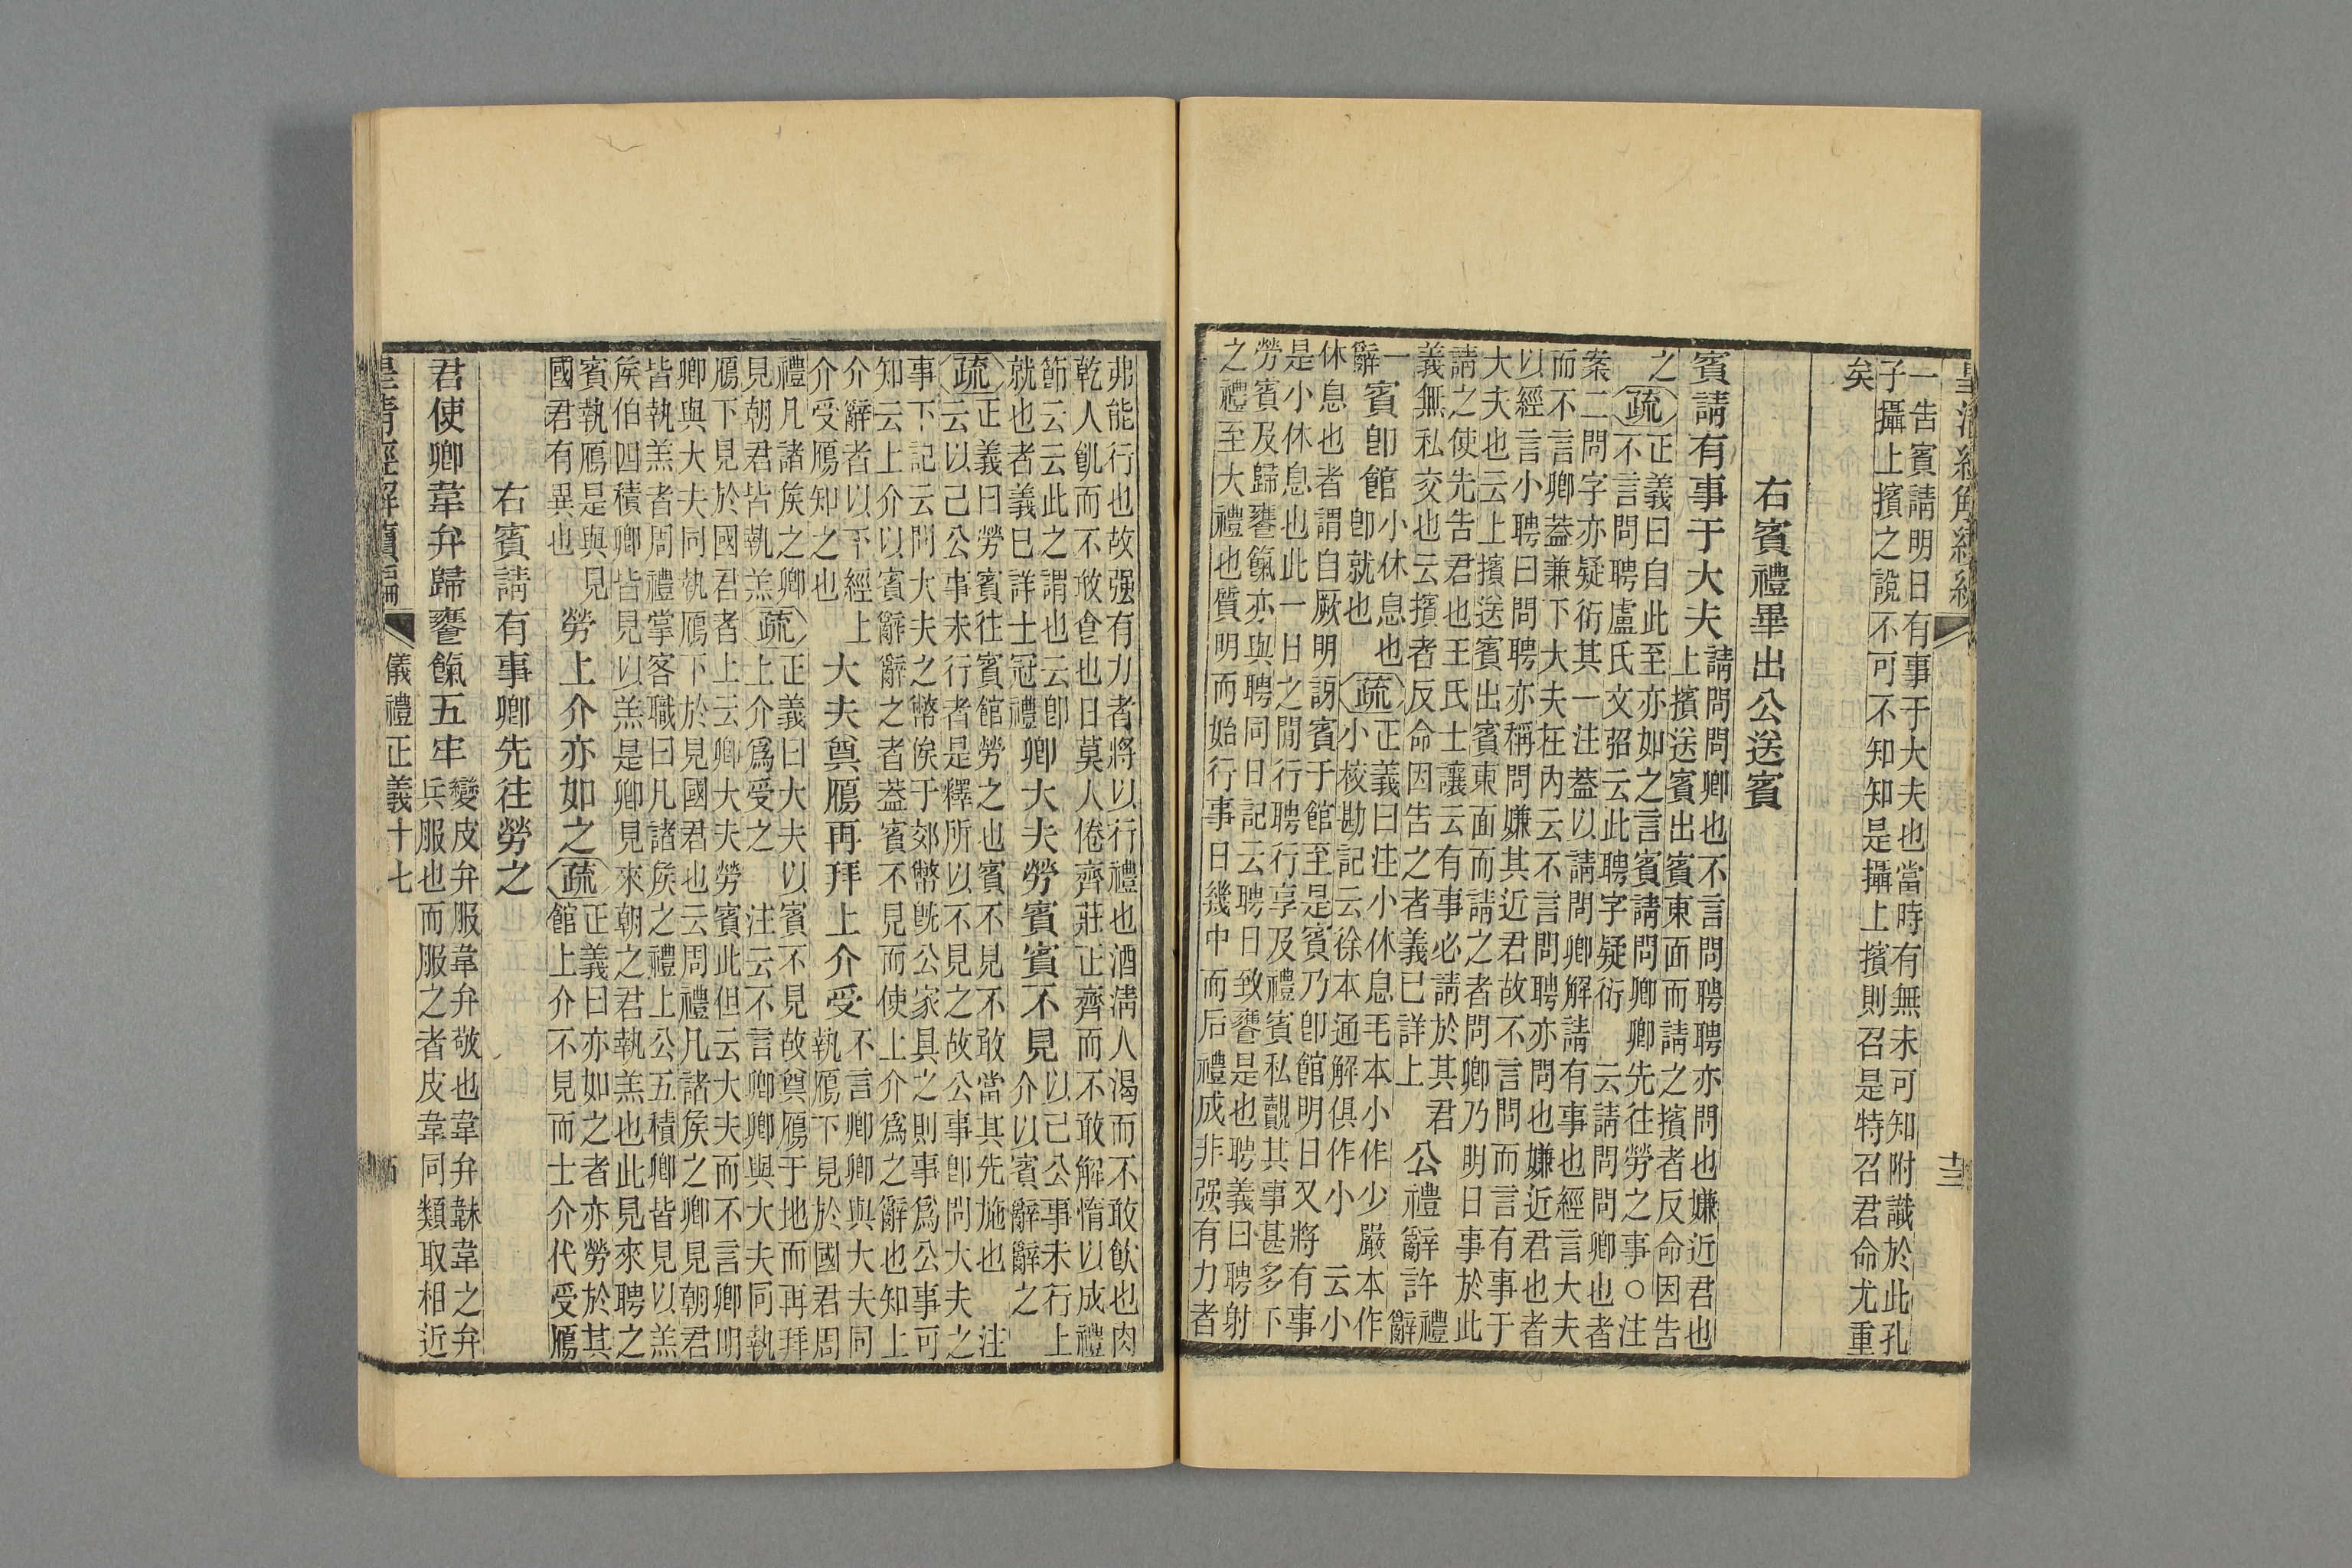 一告賓請明日有事于大夫也當時有無未可知附識於此孔
子攝上擯之說不可不知知是攝上擯則召是特召君命尤重
矣
右賓禮畢出公送賓
賓請有事于大夫
請問問卿也不言問聘聘亦問也嫌近君也
上擯送賓出賓東面而請之擯者反命因告
之
疏
正義曰自此至亦如之言賓請問卿卿先往勞之事○注
不言問聘盧氏文弨云此聘字疑衍 云請問問卿也者
案二問字亦疑衍其一注蓋以請問卿解請有事也經言大夫
而不言卿蓋兼下大夫在內云不言問聘亦問也嫌近君也者
以經言小聘曰問聘亦稱問嫌其近君故不言問而言有事于
大夫也云上擯送賓出賓東面而請之者問卿乃明日事於此
請之使先告君也王氏士讓云有事必請於其君
義無私交也云擯者反命因告之者義已詳上
公禮辭許
禮
辭
一
辭
賓卽館
小休息也
卽就也
疏
正義曰注小休息毛本小作少嚴本作
小校勘記云徐本通解俱作小 云小
休息也者謂自厥明訝賓于館至是賓乃卽館明日又將有事
是小休息也此一日之閒行聘行享及禮賓私覿其事甚多下
勞賓及歸饔餼亦與聘同日記云聘日致饔是也聘義曰聘射
之禮至大禮也質明而始行事日幾中而后禮成非强有力者
弗能行也故强有力者將以行禮也酒清人渴而不敢飮也肉
乾人飢而不敢食也日莫人倦齊莊正齊而不敢解惰以成禮
節云云此之謂也云卽
就也者義已詳士冠禮
卿大夫勞賓賓不見
以己公事未行上
介以賓辭辭之
疏
正義曰勞賓往賓館勞之也賓不見不敢當其先施也 注
云以己公事未行者是釋所以不見之故公事卽問大夫之
事下記云問大夫之幣俟于郊幣旣公家具之則事爲公事可
知云上介以賓辭辭之者蓋賓不見而使上介爲之辭也知上
介辭者以下經上
介受鴈知之也
大夫奠鴈再拜上介受
不言卿卿與大夫同
執鴈下見於國君周
禮凡諸矦之卿
見朝君皆執羔
疏
正義曰大夫以賓不見故奠鴈于地而再拜
上介爲受之 注云不言卿卿與大夫同執
鴈下見於國君者上云卿大夫勞賓此但云大夫而不言卿明
卿與大夫同執鴈下於見國君也云周禮凡諸矦之卿見朝君
皆執羔者周禮掌客職曰凡諸矦之禮上公五積卿皆見以羔
矦伯四積卿皆見以羔是卿見來朝之君執羔也此見來聘之
賓執鴈是與見
國君有異也
勞上介亦如之
疏
正義曰亦如之者亦勞於其
館上介不見而士介代受鴈
右賓請有事卿先往勞之
君使卿韋弁歸饔餼五牢
變皮弁服韋弁敬也韋弁韎韋之弁
兵服也而服之者皮韋同類取相近
儀禮正義十七